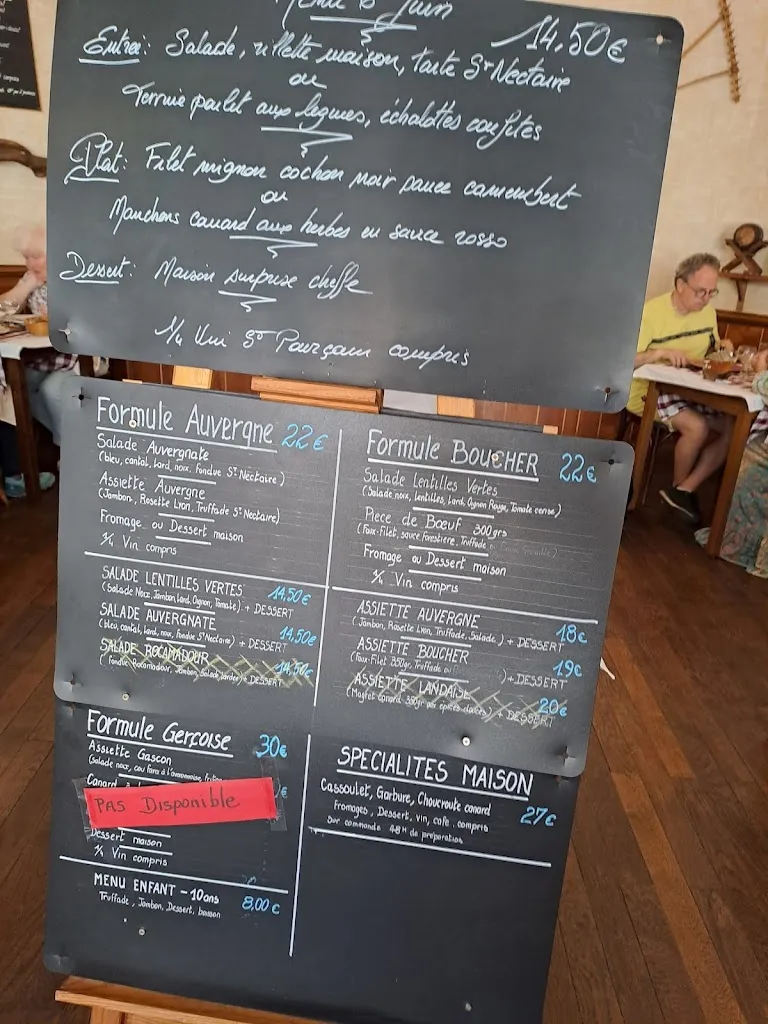 Menu 6 Juin
14,50€
Entrée: Salade, rillette maison, tarte St Nectaire
ou
Terrine poulet aux légumes, échalottes confites
Plat: Filet mignon cochon noir sauce camembert
ou
Manchons canard aux herbes en sauce rosso
Dessert: Maison surprise cheffe
1/4 Vin St Pourçain compris
Formule Auvergne 22€
Salade Auvergnate
(bleu, cantal, lard, noix, fondue St Nectaire)
Assiette Auvergne
(Jambon, Rosette Lyon, Truffade St Nectaire)
Fromage ou Dessert maison
1/4 Vin compris
SALADE LENTILLES VERTES 14,50€
(Salade Noix, Jambon, Lard, Oignon, Tomate) + DESSERT
SALADE AUVERGNATE 14,50€
(bleu, cantal, lard, noix, fondue St Nectaire) + DESSERT
SALADE ROCAMADOUR 14,50€
(fondue Rocamadour, Jambon, Salade, lardes) + DESSERT
Formule BOUCHER 22€
Salade Lentilles Vertes
(Salade noix, lentilles, Lard, Oignon Rouge, Tomate cerise)
Piece de Bœuf 300grs
(Faux-Filet, sauce Forestière, Truffade
Fromage ou Dessert maison
1/4 Vin compris
ASSIETTE AUVERGNE 18€
(Jambon, Rosette Lyon, Truffade, Salade) + DESSERT
ASSIETTE BOUCHER 19€
(Faux-Filet 350gr, Truffade ou ) + DESSERT
ASSIETTE LANDAISE 20€
(Magret canard 350gr aux épices douces) + DESSERT
Formule Gerçoise 30€
Assiette Gascon
(Salade noix, cou farci à l'armagnac,
Canard
€
PAS DISPONIBLE
Dessert maison
1/4 Vin compris
MENU ENFANT -10ans 8,00€
Truffade, Jambon, Dessert, boisson
SPECIALITES MAISON
Cassoulet, Garbure, Choucroute canard 27€
Fromages, Dessert, vin, café, compris
Sur commande 48H de préparation